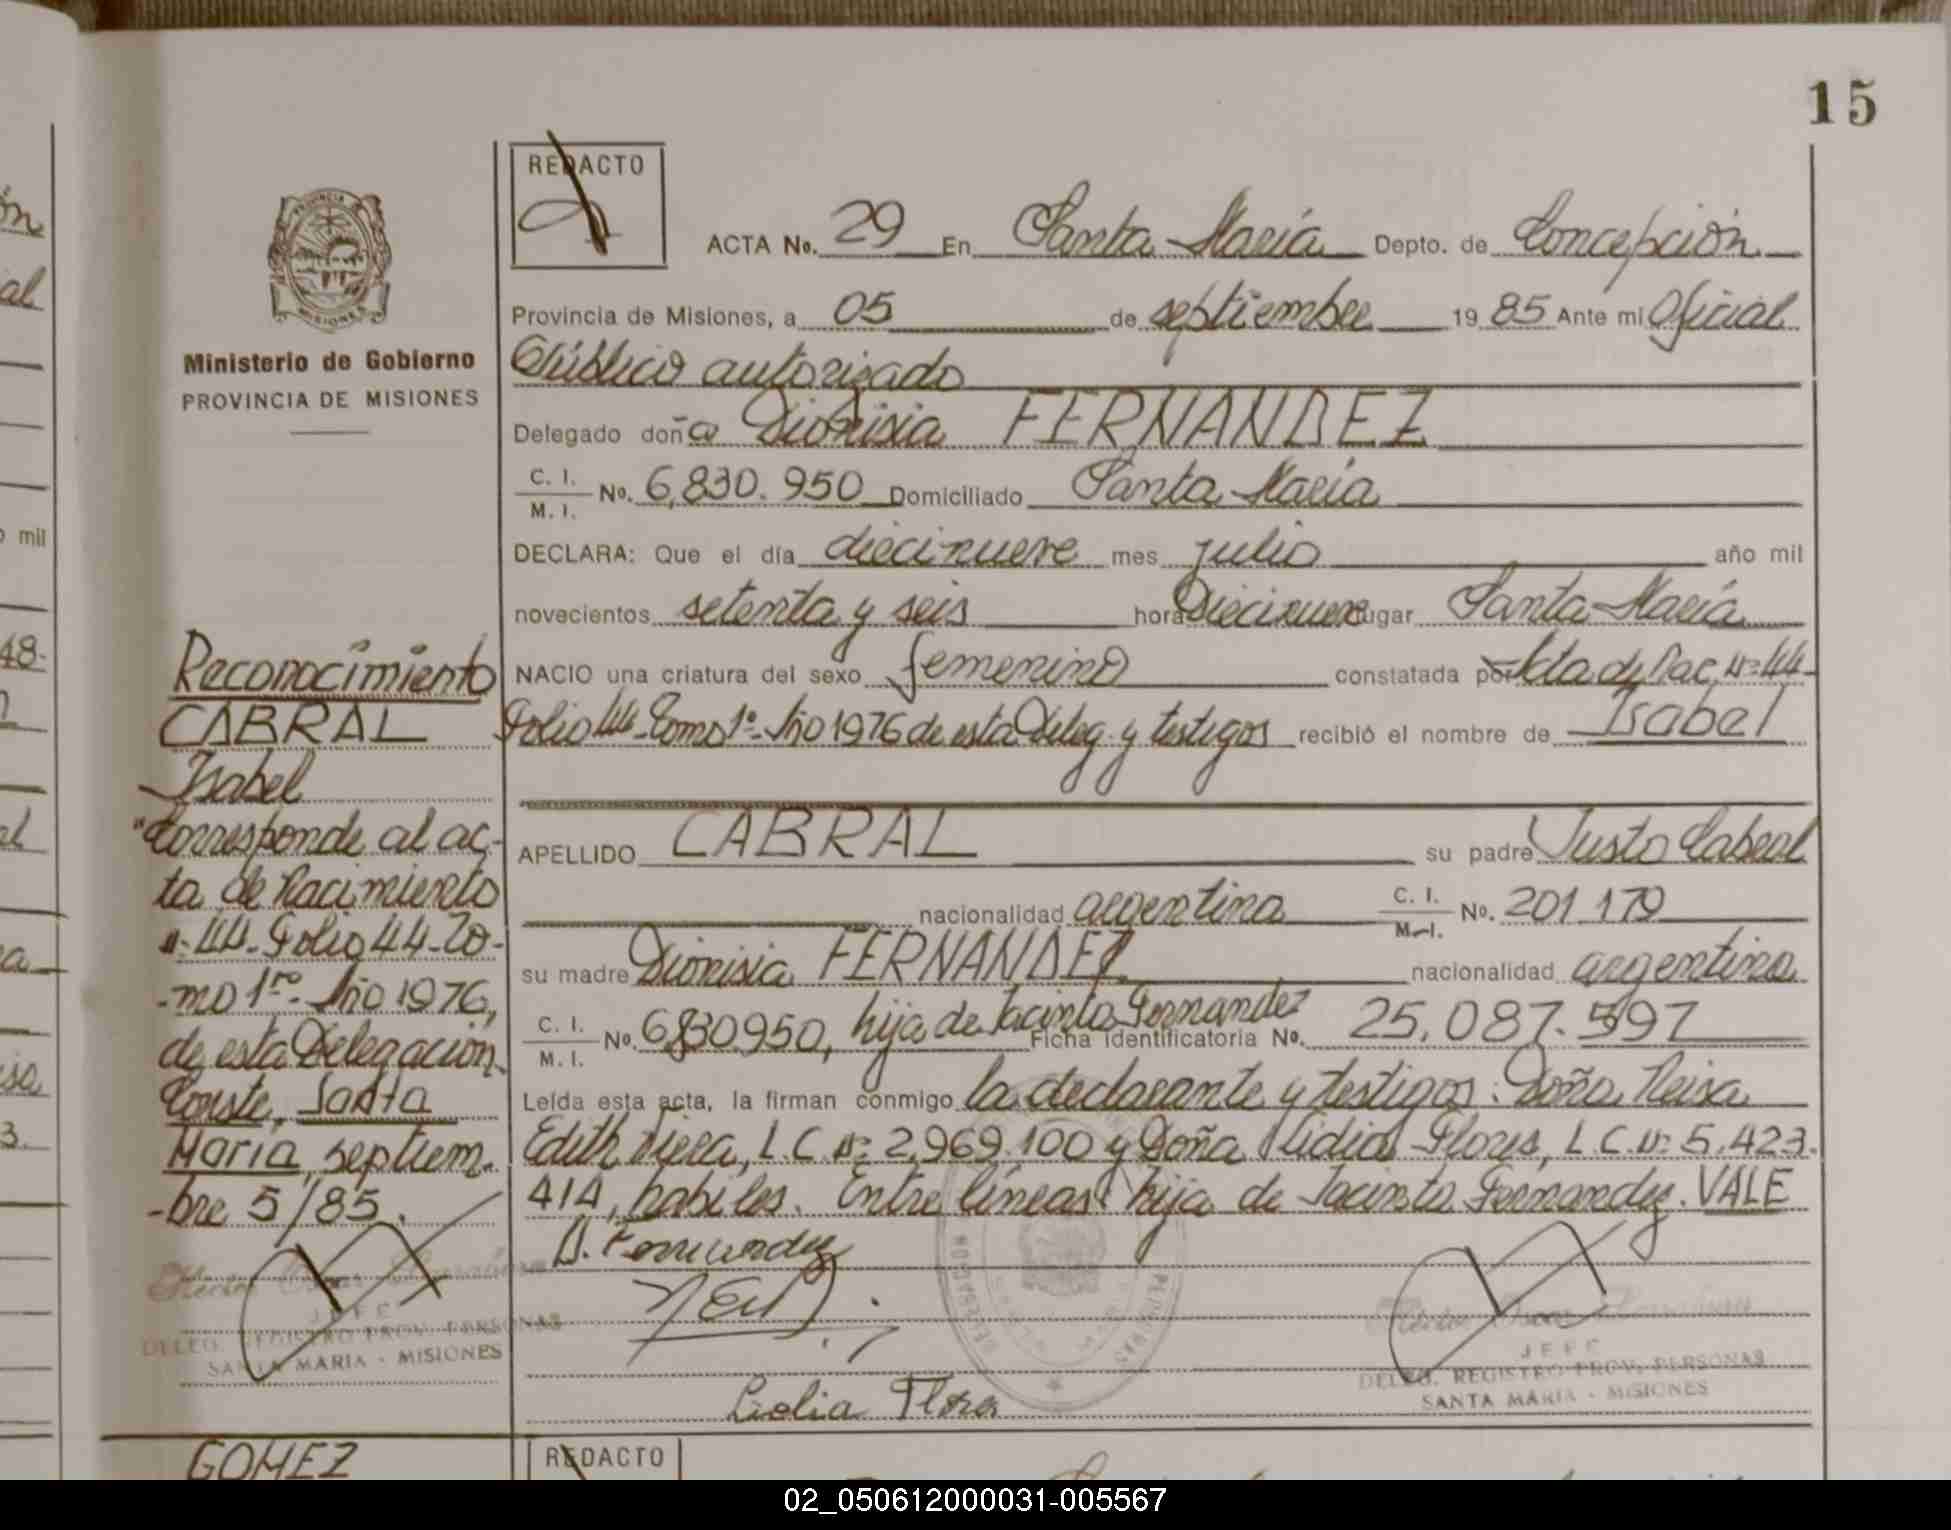 15
REDACTO
ACTA No. 29 En Santa María Depto. de Concepción
Provincia de Misiones, a 05 de septiembre 1985 Ante mi Oficial
Público autorizado
Delegado doña Dionisia FERNANDEZ
C. I.
M. I. No. 6,830.950 Domiciliado Santa María
DECLARA: Que el día diecinueve mes julio año mil
novecientos setenta y seis hora Diecinueve lugar Santa María
NACIO una criatura del sexo femenino constatada por Acta de Nac. Nº 44-
Folio 44- Tomo 1º- Año 1976 de esta Deleg. y testigos recibió el nombre de Isabel
APELLIDO CABRAL su padre Justo Cabral
nacionalidad argentina C. I. M. I. No. 201.179
su madre Dionisia FERNANDEZ nacionalidad argentina
C. I.
M. I. No. 6830950, hija de Jacinto Fernandez Ficha Identificatoria No. 25.087.597
Leída esta acta, la firman conmigo la declarante y testigos: Doña Neisa
Edith Viera, L.C. Nº 2.969.100 y Doña Lidia Flores, L.C. Nº 5.423.
414, habiles. Entre líneas: hija de Jacinto Fernandez. VALE
D. Fernandez
Lidia Flores
JEFE
DELEG. REGISTRO PROV. PERSONAS
SANTA MARIA - MISIONES
PROVINCIA
MISIONES
Ministerio de Gobierno
PROVINCIA DE MISIONES
Reconocimiento
CABRAL
Isabel
"Corresponde al ac-
ta de Nacimiento
nº 44- Folio 44- To-
-mo 1ro- Año 1976,
de esta Delegación.
Conste, Santa
María, septiem-
-bre 5/85.
JEFE
DELEG. REGISTRO PROV. PERSONAS
SANTA MARIA - MISIONES
GOMEZ
REDACTO
mil
48-
3.
02_050612000031-005567